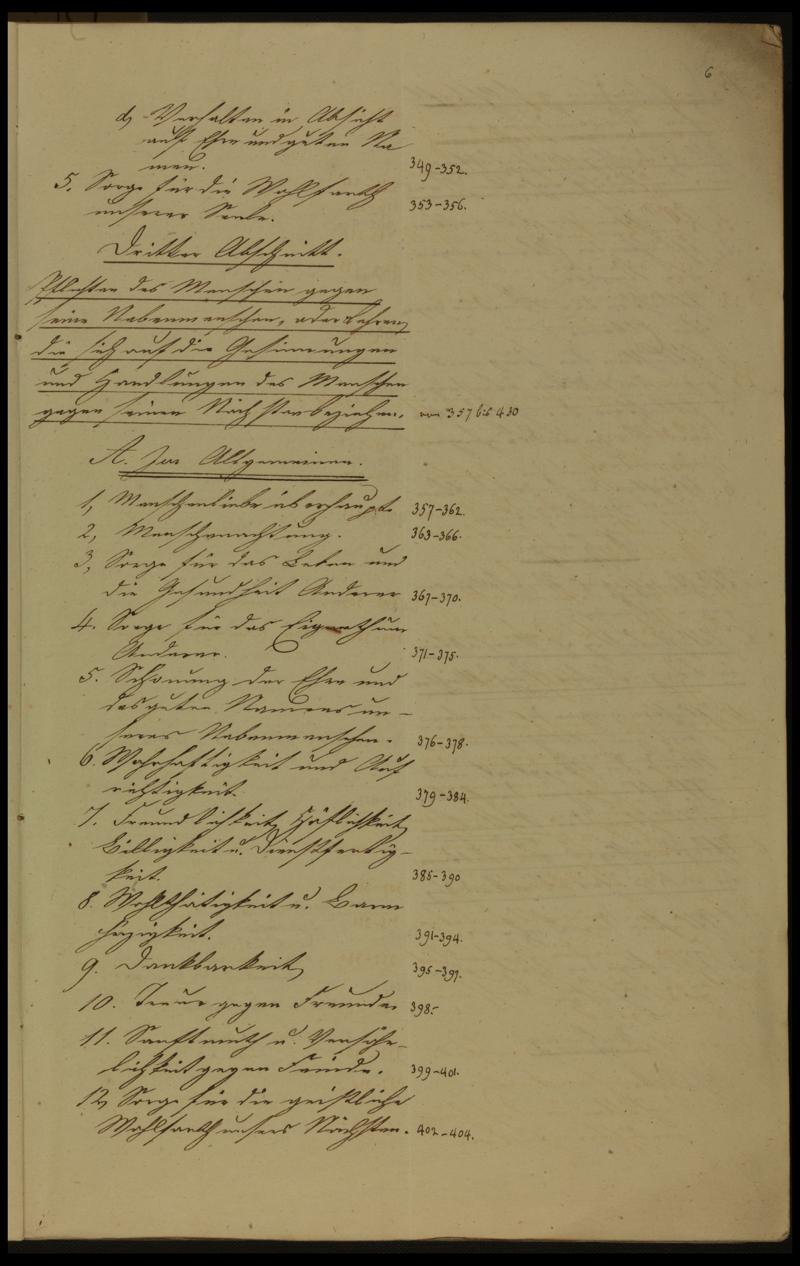 6
d, Verhalten in Absicht
auf Ehre und guten Na
men. 349-352.
5. Sorge für die Wohlfarth
unserer Seele. 353-356.
Dritter Abschnitt.
Pflichten des Menschen gegen
seine Nebenmenschen, oder Lehren,
die sich auf die Gesinnungen
und Handlungen des Menschen
gegen seinen Nächsten beziehen. von 357 bis 430
A. Im Allgemeinen.
1, Menschenliebe überhaupt 357-362.
2, Menschenachtung. 363-366.
3, Sorge für das Leben und
die Gesundheit Anderer 367-370.
4. Sorge für das Eigenthum
Anderer. 371-375.
5. Schonung der Ehre und
des guten Namens un-
seres Nebenmenschen. 376-378.
6. Wahrhaftigkeit und Auf
richtigkeit. 379-384.
7. Freundlichkeit, Höflichkeit,
Billigkeit u. Dienstfertig-
keit. 385-390
8. Wohlthätigkeit u. Barm
herzigkeit. 391-394.
9. Dankbarkeit, 395-397.
10. Treue gegen Freunde. 398.
11. Sanftmuth u. Versöhn-
lichkeit gegen Feinde. 399-401.
12, Sorge für die geistliche
Wohlfarth unsers Nächsten. 402-404.